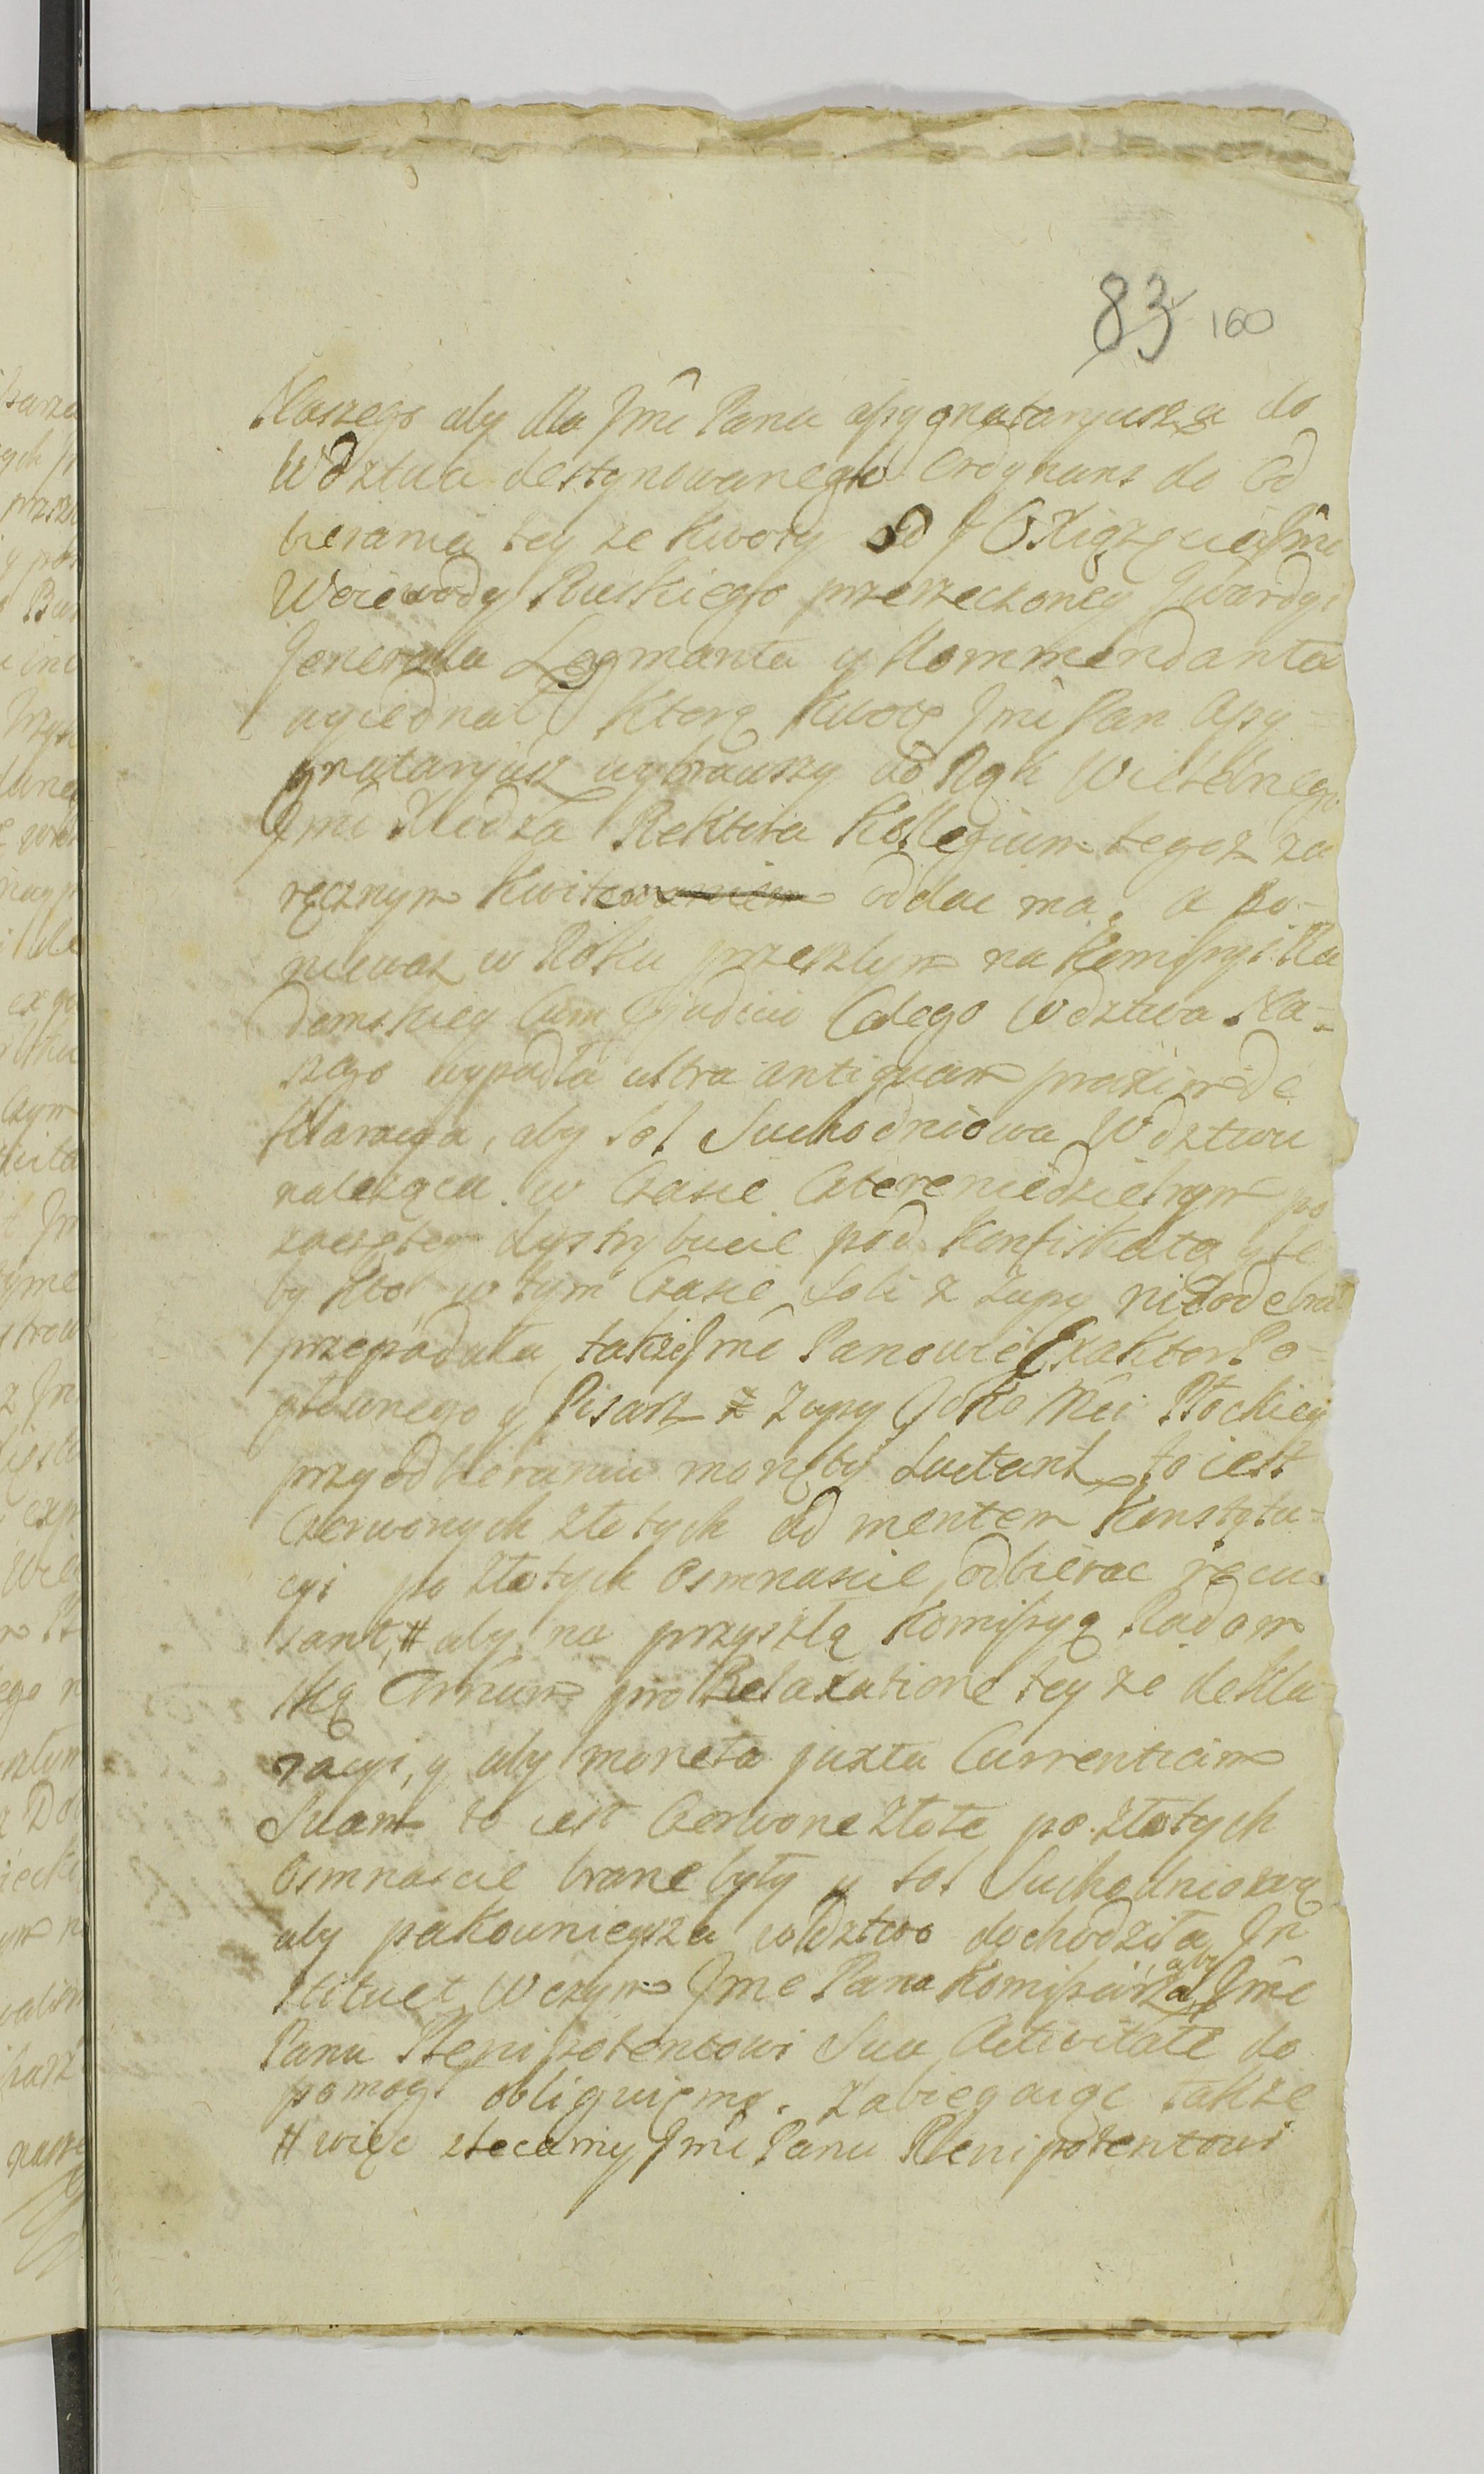 83 160
Naszego aby dla Jmci Pana assygnataryusza do
Wdztwa destynowanego Ordynans do Od
bierania tey ze kwoty od J O Xiążęcia Jmci
Woiewody Ruskiego przerzeczoney Gwardyi
Generała Leymanta y Kommendanta
uyiednał, Ktorą kwotę Jmci Pan Assy=
gnataryusz wybrawszy do Rąk Wielebnego
Jmci Xiedza Rektora Kollegium tegoz za
ręcznym Kwitowaniem oddac ma. a po=
niewaz w Roku przeszłym na Komissyi Ra
domskiey Cum Pjudicio Całego Wdztwa Na=
szego wypadła ultra antiquam praxim De
klaracya, aby Sol Suchedniowa Wdztwu
naleząca w Czasie Czteroniedzielnym po
zaczętey dystrybucie pod konfiskatą yle
by kto w tym Czasie Soli z Zupy nie odebrał
przepadała, także Jmci Panowie Exaktor Po=
głownego y Pisarz z Zupy JoKo Mci Płockiey
przy odbieraniu monety luctant to iest
Czerwonych złotych ad mentem Konstytu=
cyi po złotych Osmnascie odbierac recu
sant, # aby na przyszłą Komissyą Radom
ską Omnem pro Relaxatione tey ze dekla=
racyi, y aby moneta juxta Currentiam
Suam to iest Czerwone złote po złotych
Osmnascie brane były y Sol Suchedniowa
aby pakownieysza wdztwo dochodziła In
stituet Wczym Jmc Pana Komissarza, aby Jmc
Panu Plenipotentowi Sua Activitate do
pomogł obliguięmy. Zabiegaiąc takze
# więc zlecamy Jmci Panu Plenipotentowi